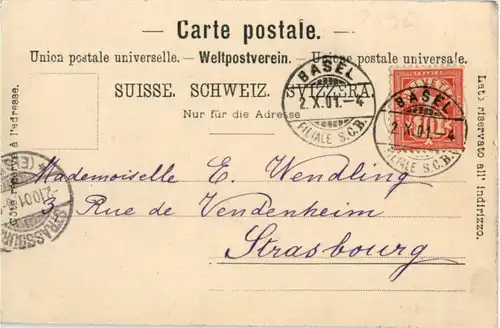 Carte postale.
Union postale universelle. — Weltpostverein. — Unione postale universale.
SUISSE. SCHWEIZ. SVIZZERA.
Nur für die Adresse
BASEL
2.X.01.-4
FILIALE S.C.B.
BASEL
2.X.01.-4
FILIALE S.C.B.
HELVETIA
Côté réservé à l'adresse.
Lato riservato all' indirizzo.
Mademoiselle E. Wendling
3 Rue de Vendenheim
Strasbourg
STRASSBURG
2.10.01